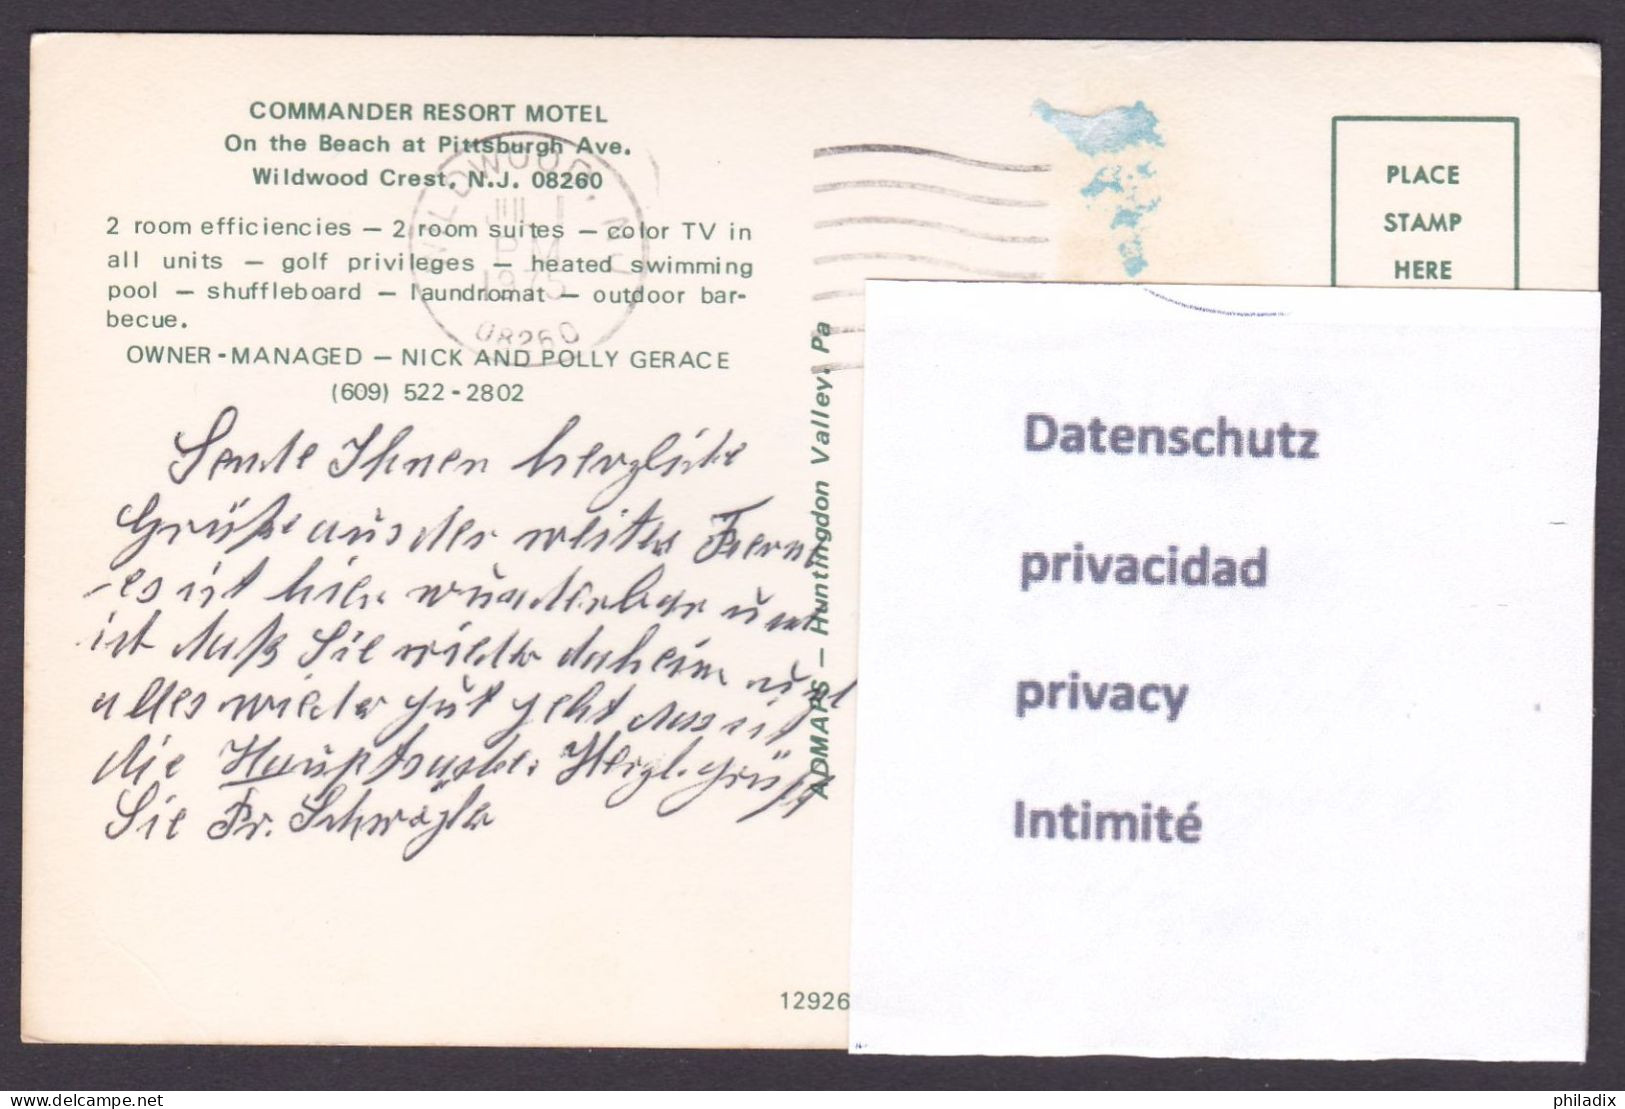 COMMANDER RESORT MOTEL
On the Beach at Pittsburgh Ave.
Wildwood Crest, N.J. 08260
2 room efficiencies — 2 room suites — color TV in
all units — golf privileges — heated swimming
pool — shuffleboard — laundromat — outdoor bar-
becue.
OWNER-MANAGED — NICK AND POLLY GERACE
(609) 522-2802
Sende Ihnen herzliche
Grüße aus der weiten Ferne
es ist hier wunderbar und
ist daß Sie wieder daheim und
alles wieder gut geht das ist
die Hauptsache. Herzl. grüßt
Sie Fr.
WILDWOOD, N.J.
PM
1975
08260
ADMAPS — Huntingdon Valley, Pa
PLACE
STAMP
HERE
Datenschutz
privacidad
privacy
Intimité
12926
the-collector.delcampe.net
philadix